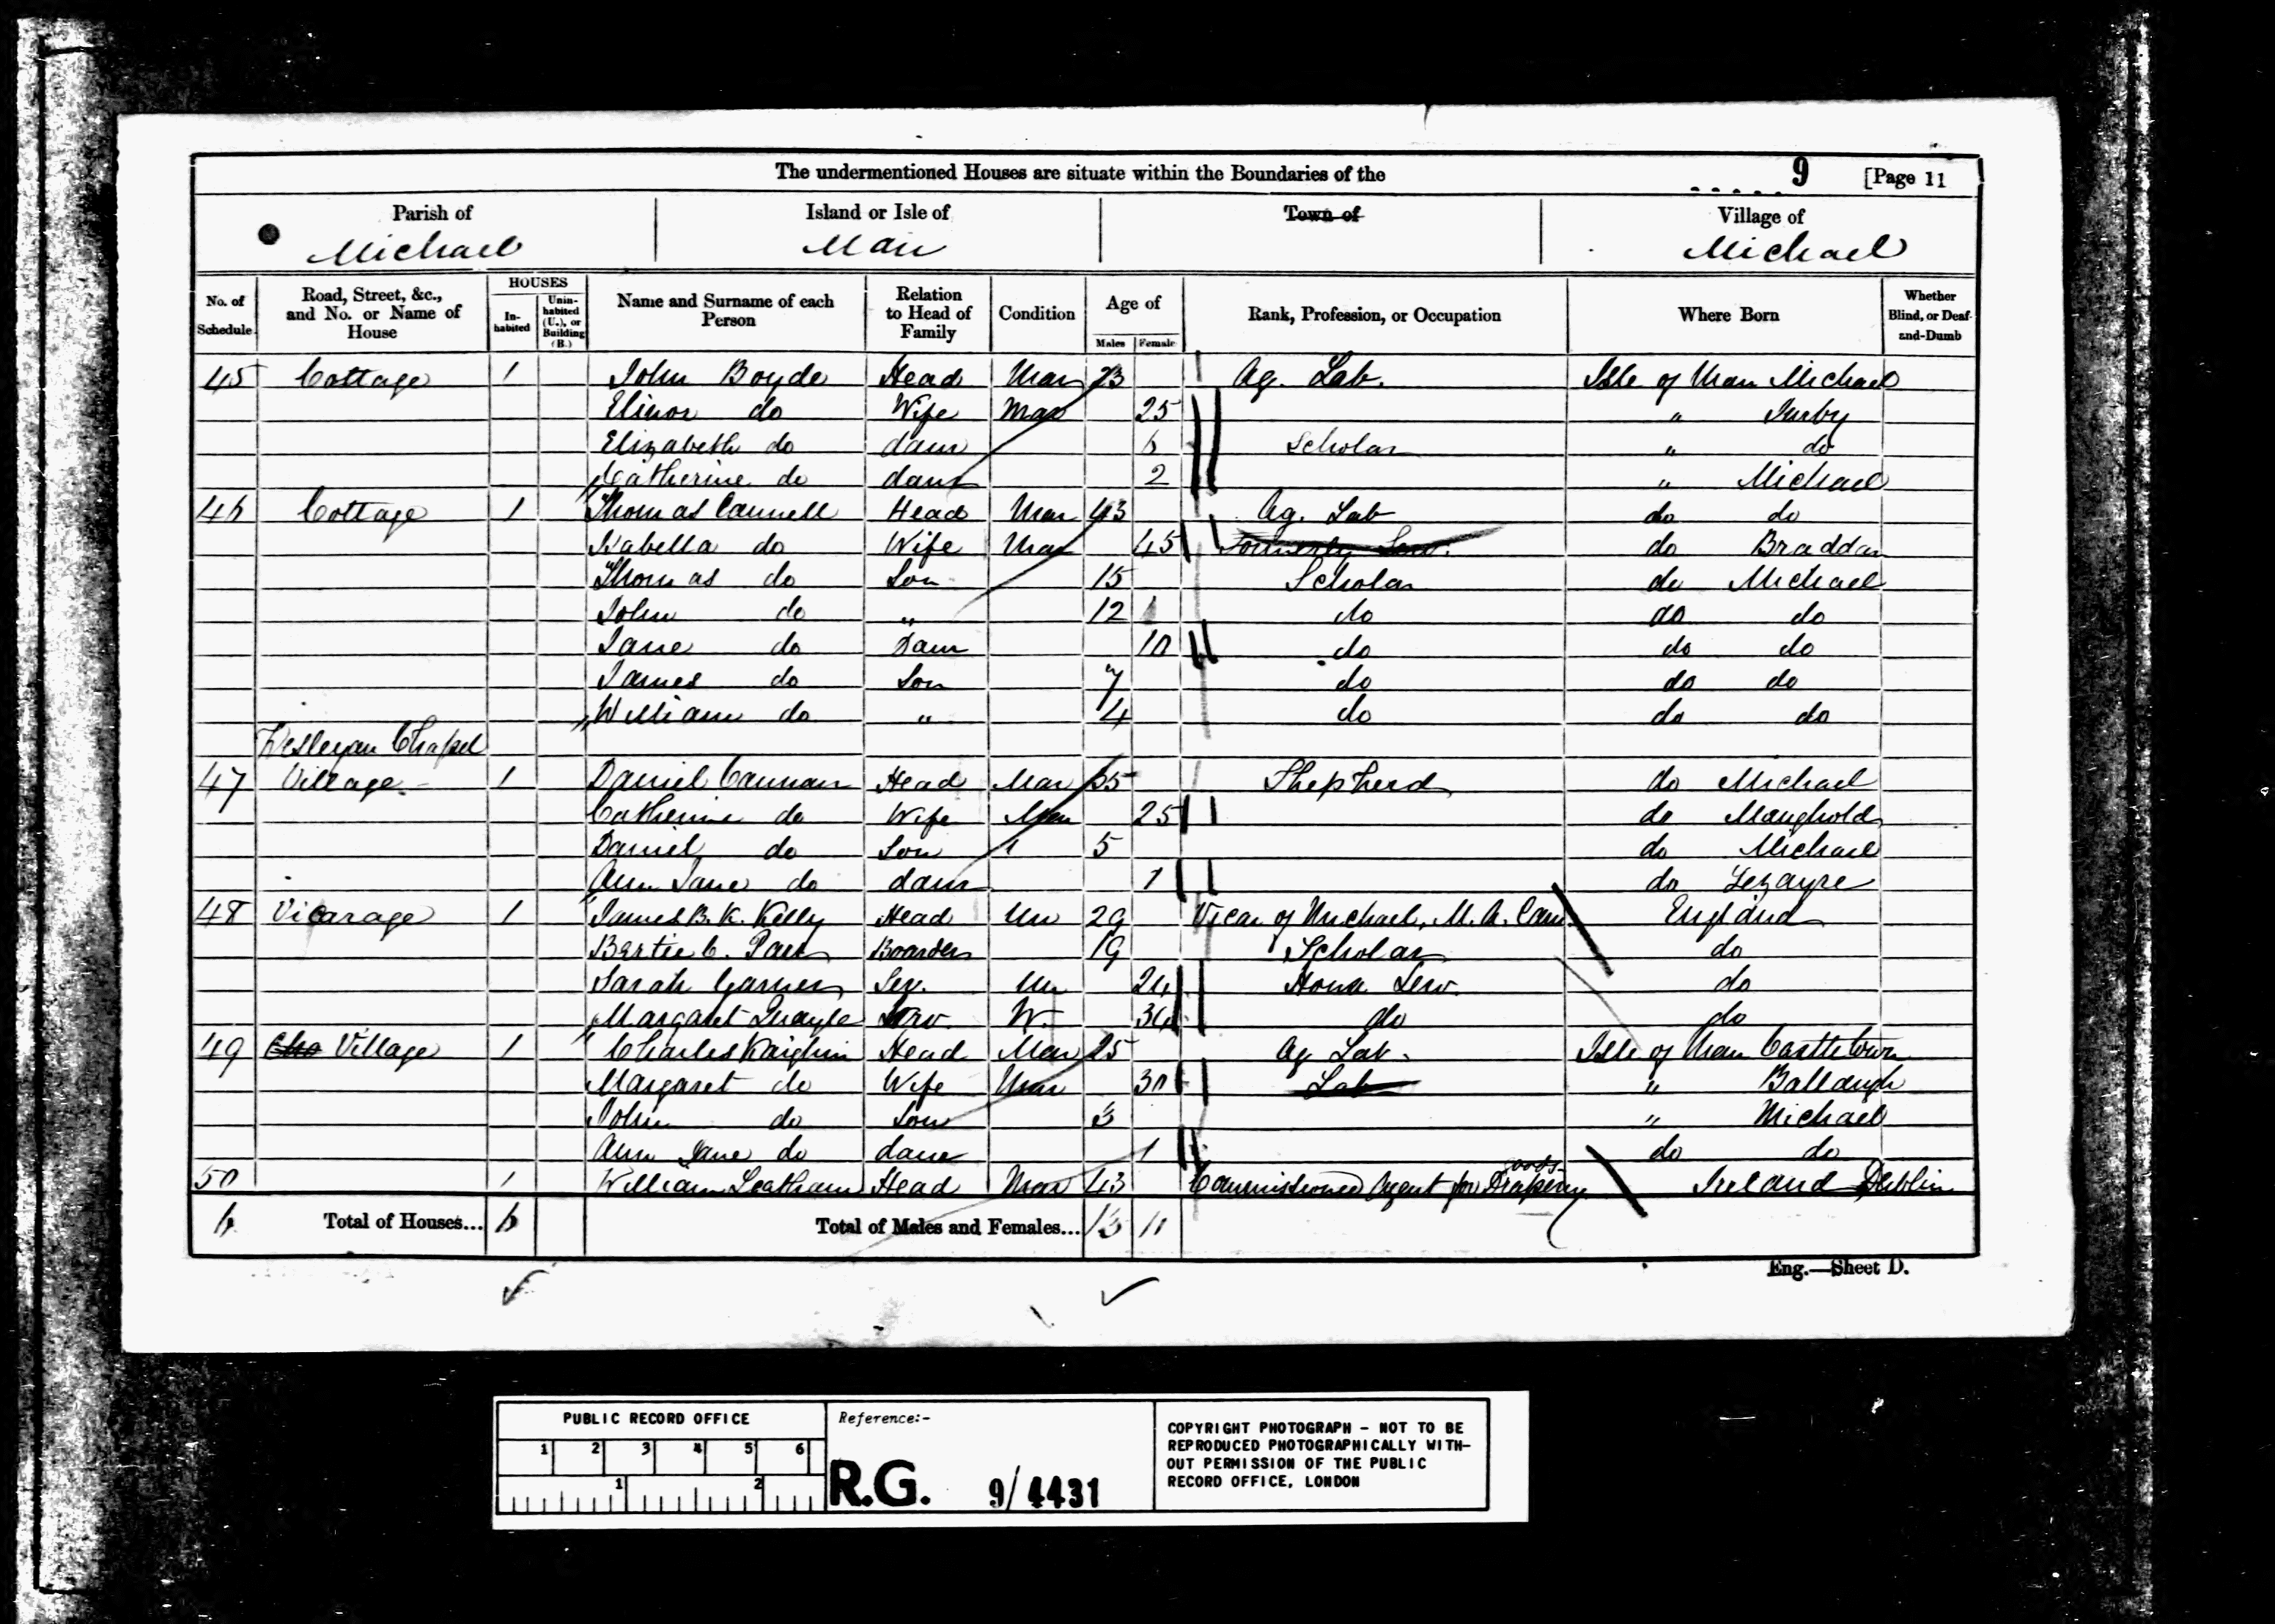 The undermentioned Houses are situate within the Boundaries of the 9 [Page 11
Parish of Island or Isle of Town of Village of
Michael Man Michael
No. of Schedule Road, Street, &c., and No. or Name of House HOUSES In-habited Unin-habited (U.), or Building (B.) Name and Surname of each Person Relation to Head of Family Condition Age of Males Female Rank, Profession, or Occupation Where Born Whether Blind, or Deaf-and-Dumb
45 Cottage 1 John Boyde Head Mar 23 Ag. Lab. Isle of Man Michael
Elinor do Wife Mar 25 " Jurby
Elizabeth do daur 6 Scholar " do
Catherine do daur 2 " Michael
46 Cottage 1 Thomas Cannell Head Mar 43 Ag. Lab do do
Isabella do Wife Mar 45 Formerly Serv. do Braddan
Thomas do Son 15 Scholar do Michael
John do " 12 do do do
Jane do Daur 10 do do do
James do Son 7 do do do
William do " 4 do do do
Wesleyan Chapel
47 Village 1 Daniel Cannan Head Mar 35 Shepherd do Michael
Catherine do Wife Mar 25 do Maughold
Daniel do Son 5 do Michael
Ann Jane do daur 1 do Lezayre
48 Vicarage 1 James B. K. Kelly Head Un 29 Vicar of Michael, M. A. Cam. England
Bertie C. Boarder 19 Scholar do
Sarah Garner Ser. Un 24 House Serv. do
Margaret Quayle Serv. W. 34 do do
49 Village 1 Charles Kaighin Head Mar 25 Ag Lab. Isle of Man Castletown
Margaret do Wife Mar 30 Lab " Ballaugh
John do Son 3 " Michael
Ann Jane do daur 1 do do
50 1 William Leatham Head Mar 43 Commissioned Agent for Drapery goods Ireland Dublin
6 Total of Houses... 6 Total of Males and Females... 13 11
Eng.—Sheet D.
PUBLIC RECORD OFFICE
1 2 3 4 5 6
1 2
Reference:-
R.G. 9/4431
COPYRIGHT PHOTOGRAPH - NOT TO BE
REPRODUCED PHOTOGRAPHICALLY WITH-
OUT PERMISSION OF THE PUBLIC
RECORD OFFICE, LONDON